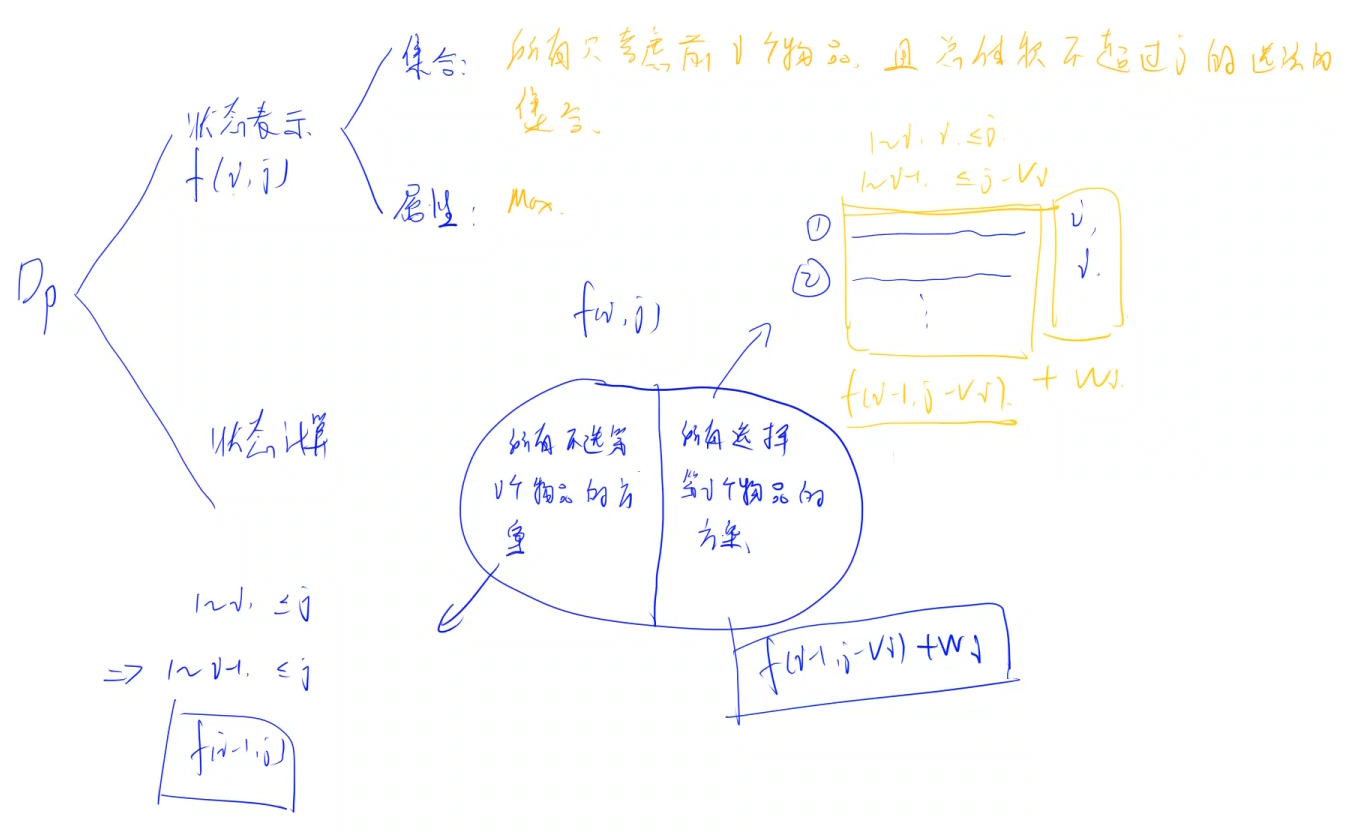 集合: 所有只考虑前i个物品, 且总体积不超过j的选法的
集合.
状态表示
f(i,j)
属性: Max.
Dp
状态计算
1~i, i, ≤j.
1~i-1, ≤j-Vi
①
②
⋮
i,
i.
f(i-1,j-Vi). + Wi.
f(i,j)
所有不选第
i个物品的方
案
所有选择
第i个物品的
方案、
1~i, ≤j
=> 1~i-1, ≤j
f(i-1,j)
f(i-1,j-Vi)+Wi